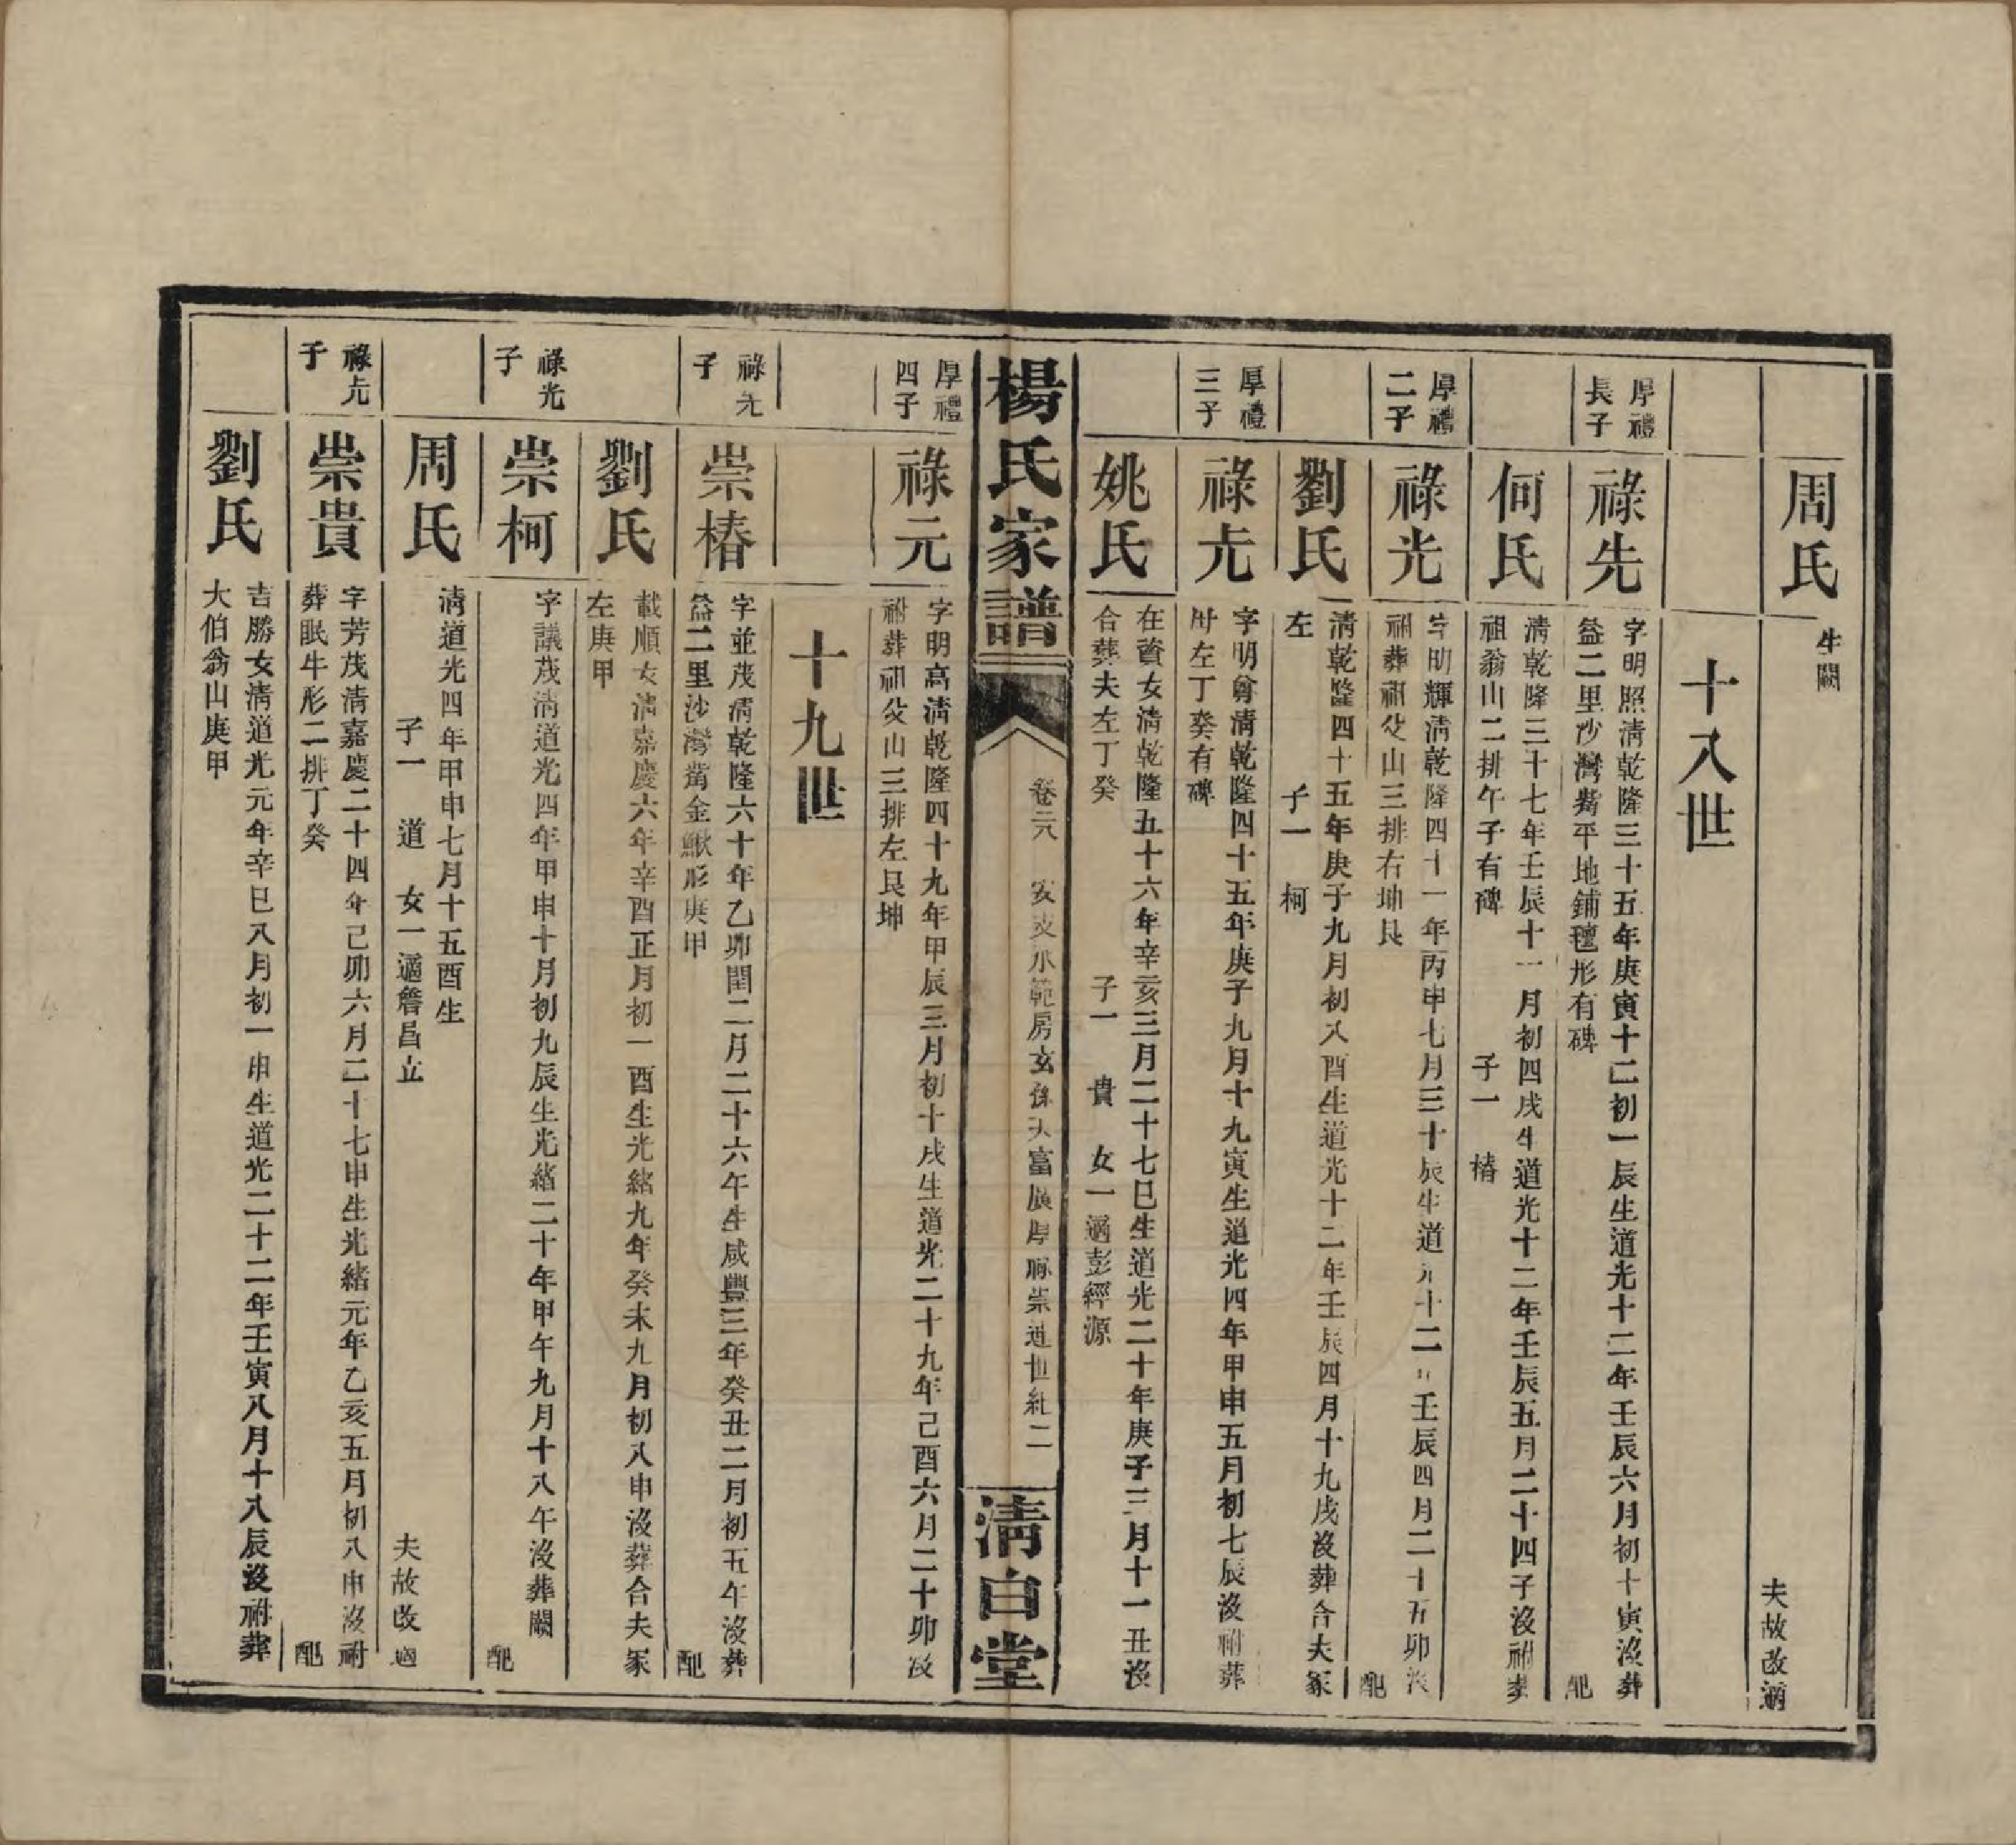 周氏
生闕
夫故改適
十八世
厚禮
長子
祿先
字明照淸乾隆三十五年庚寅十二初一辰生道光十二年壬辰六月初十寅沒葬
益二里沙灣觜平地鋪氊形有碑
配
何氏
淸乾隆三十七年壬辰十一月初四戌生道光十二年壬辰五月二十四子沒祔葬
祖翁山二排午子有碑 子一 椿
厚禮
二子
祿光
字明輝淸乾隆四十一年丙申七月三十辰生道光十二年壬辰四月二十五卯沒
祔葬祖父山三排右坤艮
配
劉氏
淸乾隆四十五年庚子九月初八酉生道光十二年壬辰四月十九戌沒葬合夫冢
左 子一 柯
厚禮
三子
祿圥
字明尊淸乾隆四十五年庚子九月十九寅生道光四年甲申五月初七辰沒祔葬
母左丁癸有碑
姚氏
在贊女淸乾隆五十六年辛亥三月二十七巳生道光二十年庚子三月十一丑沒
合葬夫左丁癸 子一 貴 女一適彭經源
楊氏家譜
卷二八 安支 範房玄孫大富展厚祿崇道世紀二
淸白堂
厚禮
四子
祿元
字明高淸乾隆四十九年甲辰三月初十戌生道光二十九年己酉六月二十卯沒
祔葬祖父山三排左艮坤
十九世
祿先
子
崇椿
字並茂淸乾隆六十年乙卯閏二月二十六午生咸豐三年癸丑二月初五午沒葬
益二里沙灣觜金鰍形庚甲
配
劉氏
載順女淸嘉慶六年辛酉正月初一酉生光緒九年癸未九月初八申沒葬合夫冢
左庚甲
祿光
子
崇柯
字議茂淸道光四年甲申十月初九辰生光緒二十年甲午九月十八午沒葬闕
配
周氏
淸道光四年甲申七月十五酉生
子一 道 女一適詹昌立
夫故改適
祿圥
子
崇貴
字芳茂淸嘉慶二十四年己卯六月二十七申生光緒元年乙亥五月初八申沒祔
葬眠牛形二排丁癸
配
劉氏
吉勝女淸道光元年辛巳八月初一申生道光二十二年壬寅八月十八辰沒祔葬
大伯翁山庚甲